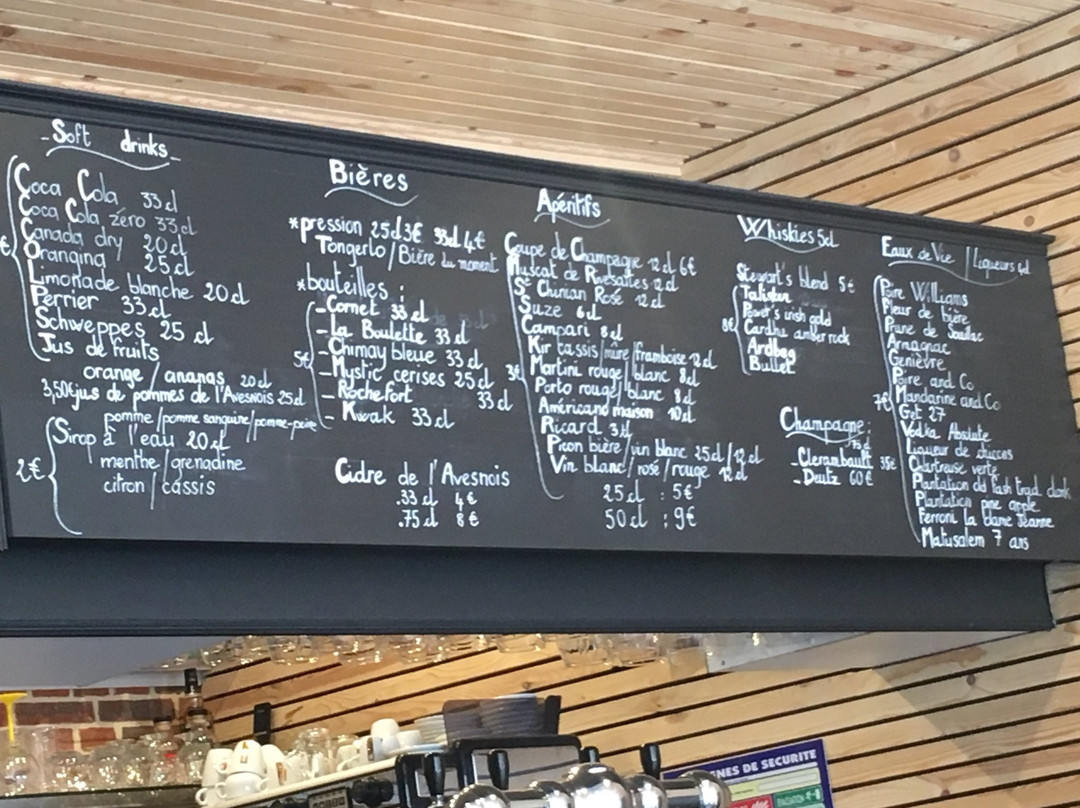 Soft drinks
Coca Cola 33 cl
Coca Cola zéro 33 cl
Canada dry 20 cl
Oranging 25 cl
Limonade blanche 20 cl
Perrier 33 cl
Schweppes 25 cl
Jus de fruits
orange / ananas 20 cl
3,50€ jus de pommes de l'Avesnois 25 cl
pomme / pomme sanguine / pomme-poire
Sirop à l'eau 20 cl
2€
menthe / grenadine
citron / cassis
Bières
*pression 25cl 3€ 33cl 4€
Tongerlo / Bière du moment
*bouteilles :
-Cornet 33 cl
-La Boulette 33 cl
-Chimay bleue 33 cl
5€
-Mystic cerises 25 cl
-Rochefort 33 cl
-Kwak 33 cl
Cidre de l'Avesnois
.33 cl 4€
.75 cl 8€
Apéritifs
Coupe de Champagne 12 cl 6€
Muscat de Rivesaltes 12 cl
St Chinian Rosé 12 cl
Suze 6 cl
Campari 8 cl
Kir cassis / mûre / framboise 12 cl
3€
Martini rouge / blanc 8 cl
Porto rouge / blanc 8 cl
Américano maison 10 cl
Ricard 3 cl
Picon bière / vin blanc 25 cl / 12 cl
Vin blanc / rosé / rouge 12 cl
25 cl : 5€
50 cl : 9€
Whiskies 5cl
Stewart's blend 5€
Talisker
Power's irish gold
8€
Cardhu amber rock
Ardbeg
Bullet
Champagne :
75 cl
-Clerambault 35€
-Deutz 60€
Eaux de Vie / Liqueurs 4cl
Poire Williams
Fleur de bière
Prune de Souillac
Armagnac
Genièvre
Poire and Co
7€
Mandarine and Co
Get 27
Vodka Absolute
Liqueur de
Chartreuse verte
Plantation old fash trad dark
Plantation pine apple
Ferroni La Dame Jeanne
Matusalem 7 ans
NES DE SECURITE